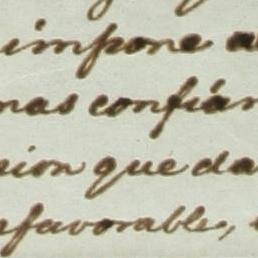 impone a
mas confián
sion que da
favorable,